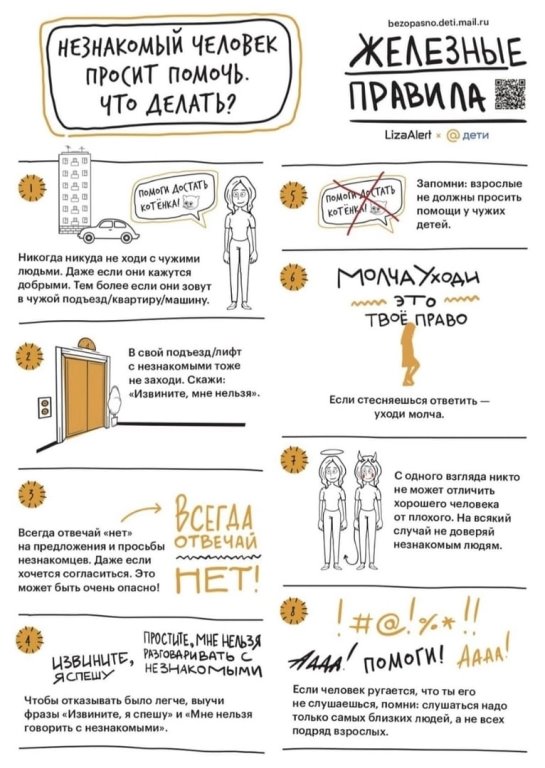 НЕЗНАКОМЫЙ ЧЕЛОВЕК
ПРОСИТ ПОМОЧЬ.
ЧТО ДЕЛАТЬ?
bezopasno.deti.mail.ru
ЖЕЛЕЗНЫЕ
ПРАВИЛА
LizaAlert × @ дети
1
ПОМОГИ ДОСТАТЬ
КОТЁНКА!
Никогда никуда не ходи с чужими
людьми. Даже если они кажутся
добрыми. Тем более если они зовут
в чужой подъезд/квартиру/машину.
2
В свой подъезд/лифт
с незнакомыми тоже
не заходи. Скажи:
«Извините, мне нельзя».
3
Всегда отвечай «нет»
на предложения и просьбы
незнакомцев. Даже если
хочется согласиться. Это
может быть очень опасно!
ВСЕГДА
ОТВЕЧАЙ
НЕТ!
4
ИЗВИНИТЕ,
Я СПЕШУ
ПРОСТИТЕ, МНЕ НЕЛЬЗЯ
РАЗГОВАРИВАТЬ С
НЕЗНАКОМЫМИ
Чтобы отказывать было легче, выучи
фразы «Извините, я спешу» и «Мне нельзя
говорить с незнакомыми».
5
ПОМОГИ ДОСТАТЬ
КОТЁНКА!
Запомни: взрослые
не должны просить
помощи у чужих
детей.
6
МОЛЧА УХОДИ
ЭТО
ТВОЁ ПРАВО
Если стесняешься ответить —
уходи молча.
7
С одного взгляда никто
не может отличить
хорошего человека
от плохого. На всякий
случай не доверяй
незнакомым людям.
8
! #@! %*!!
АААА! ПОМОГИ! АААА!
Если человек ругается, что ты его
не слушаешься, помни: слушаться надо
только самых близких людей, а не всех
подряд взрослых.